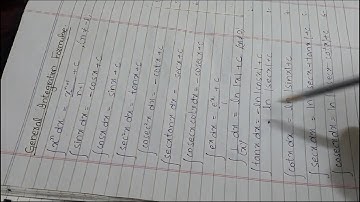 General Integration Formulae
∫xⁿ dx = xⁿ⁺¹/n+1 + c
∫sinx dx = -cosx + c
∫cosx dx = sinx + c
∫sec²x dx = tanx + c
∫cosec²x dx = -cotx + c
∫secx tanx dx = secx + c
∫cosecx cotx dx = -cosecx + c
∫eˣ dx = eˣ + c
∫1/x dx = ln|x| + c
∫tanx dx = -ln|cosx| + c
= ln|secx| + c
∫cotx dx = ln|sinx| + c
∫secx dx = ln|secx + tanx| + c
∫cosecx dx = ln